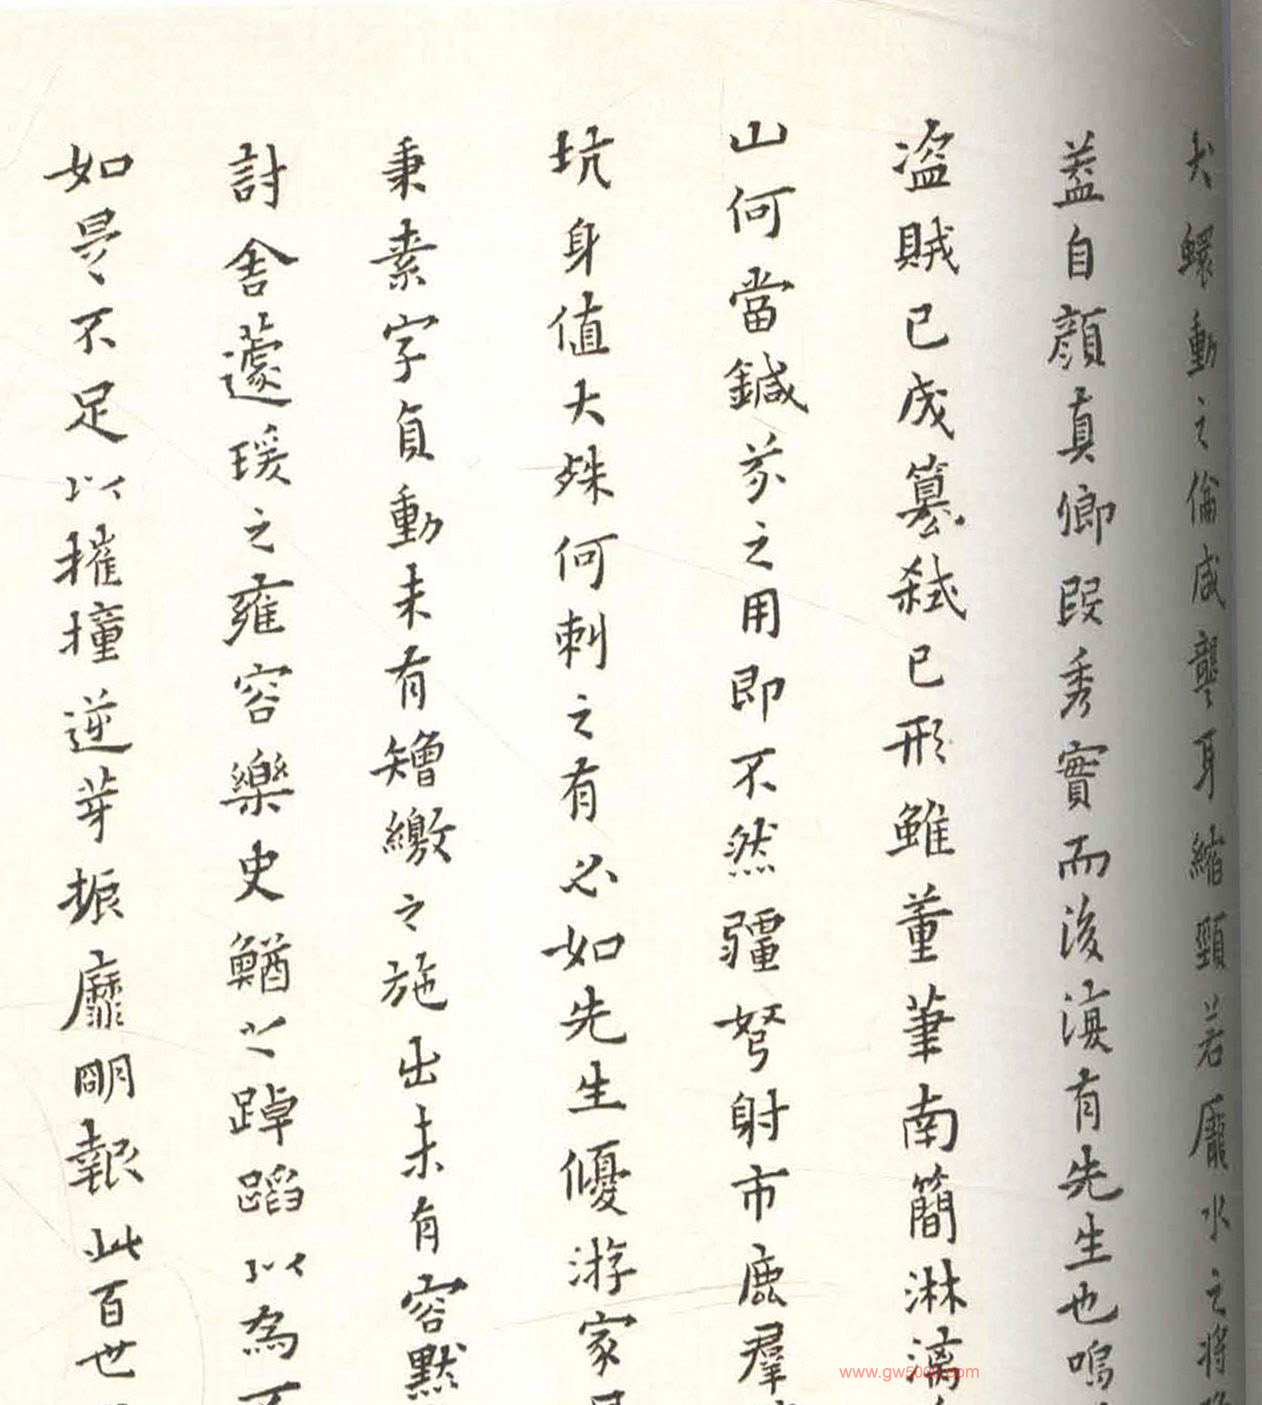 犬蠉動之倫咸聾耳縮頸若龐水之將
蓋自顏真卿段秀實而後湨有先生也嗚
盗賊已成篡弒已形雖董筆南簡淋漓
山何當鍼芥之用即不然彊弩射市鹿羣
坑身值大殊何刺之有必如先生優游家
秉素字負動未有矰繳之施出未有容默
討舍蘧瑗之雍容樂史鰌之踔蹈以為不
如是不足以摧撞逆芽振靡朙報此百世
www.gw5000.com